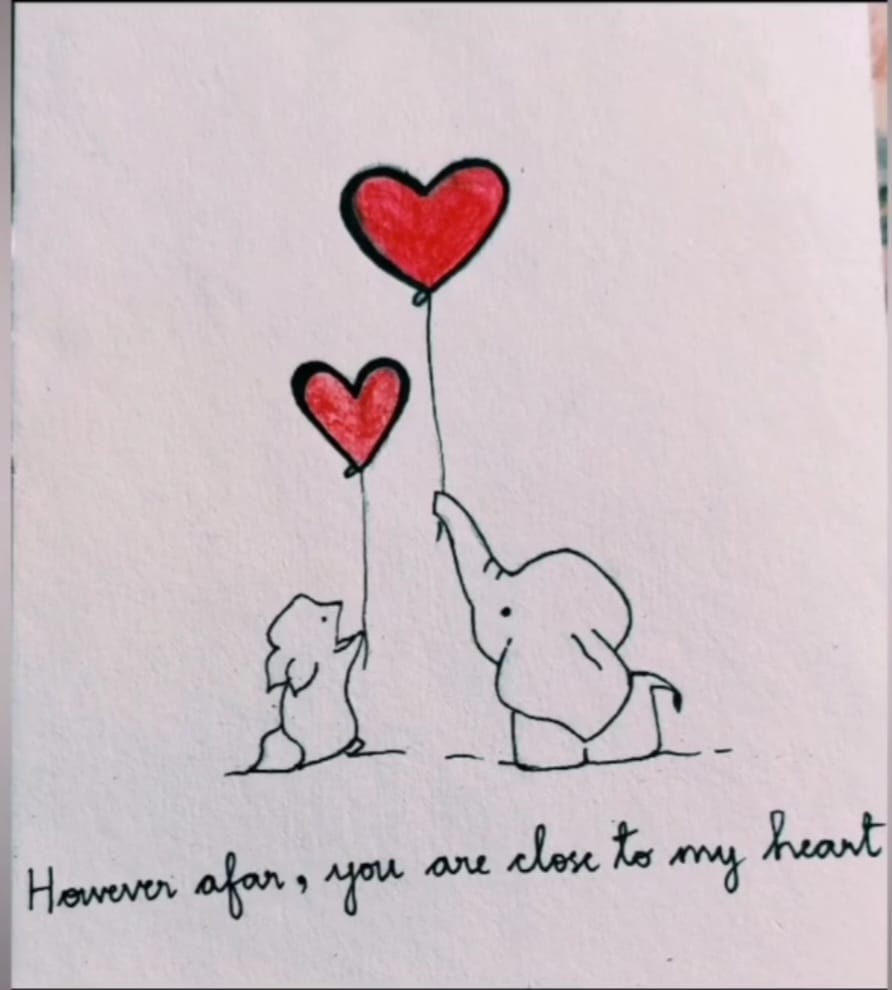 However afar, you are close to my heart